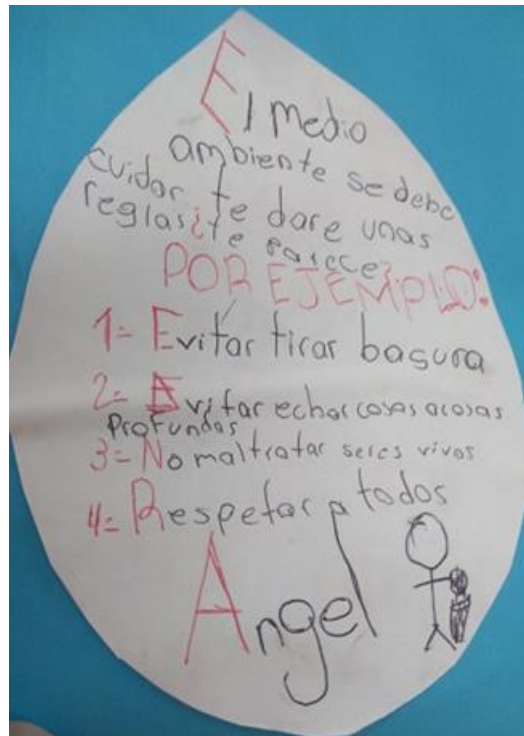 El medio
ambiente se debe
cuidar te dare unas
reglas ¿te parece?
POR EJEMPLO:
1= Evitar tirar basura
2= Evitar echar cosas acosas
Profundas
3= No maltratar seres vivos
4= Respetar a todos
Angel